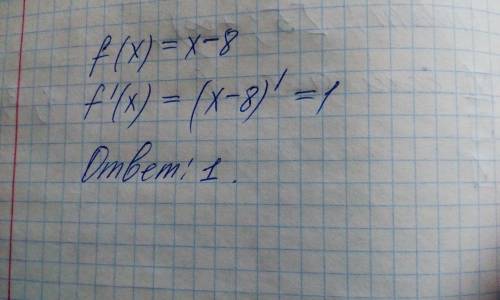 f(x) = x-8
f'(x) = (x-8)' = 1
Ответ: 1.